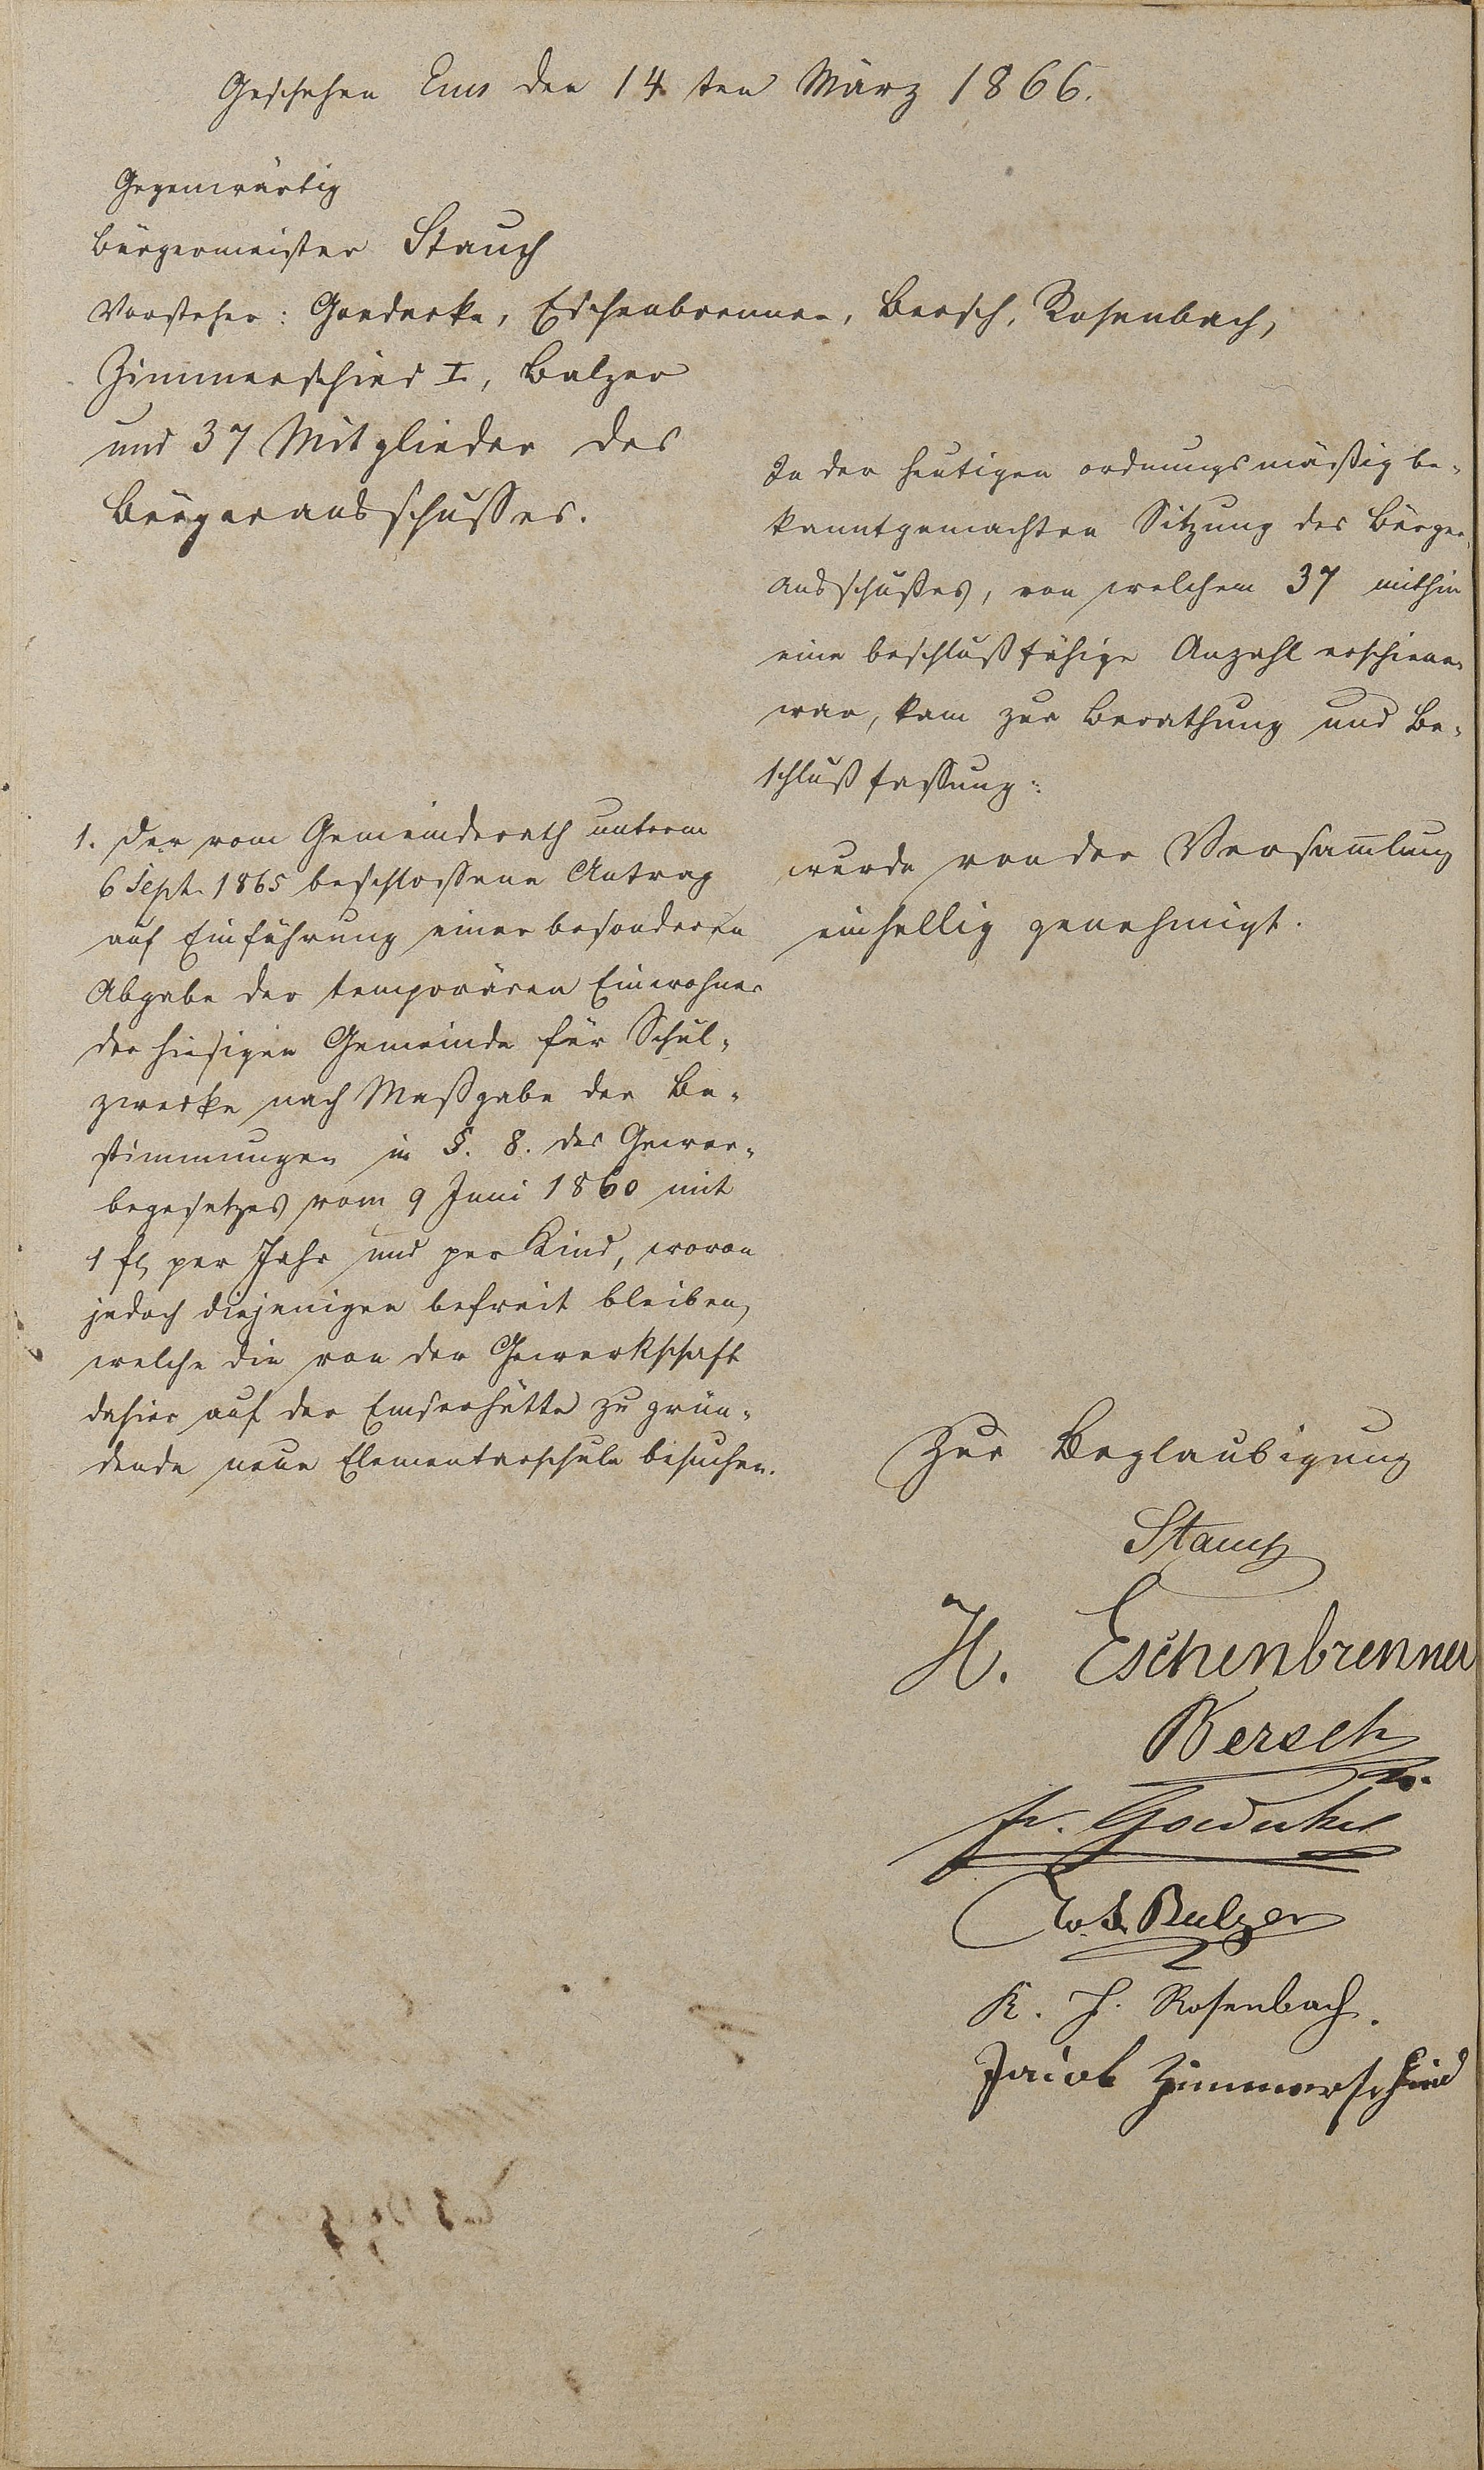 Geschehen Ems den 14ten März 1866.
Gegenwärtig
Bürgermeister Stauch
Vorsteher: Goedecke, Eschenbrenner, Bersch, Rosenbach,
Zimmerschied I, Balzer
und 37 Mitglieder des
Bürgerausschusses.
In der heutigen ordnungsmäßig be-
kanntgemachten Sitzung des Bürger-
ausschußes, von welchem 37 mithin
eine beschlußfähige Anzahl erschienen
war, kam zur Berathung und Be-
schlußfassung:
1. Der vom Gemeinderath unterm
6 Sept. 1865 beschlossene Antrag
auf Einführung einer besonderen
Abgabe der temporären Einwohner
der hiesigen Gemeinde für Schul-
zwecke nach Maßgabe der Be-
stimmungen in §. 8. des Gewer-
begesetzes vom 9 Juni 1860 mit
1 fl per Jahr und per Kind, wovon
jedoch diejenigen befreit bleiben,
welche die von der Gewerkschaft
dahier auf der Emserhütte zu grün-
dende neue Elementarschule besuchen.
wurde von der Versam̅lung
einhellig genehmigt.
Zur Beglaubigung
Stauch
H. Eschenbrenner
Bersch
Fr. Goedecke
W. Balzer
K. H. Rosenbach.
Jacob Zimmerschied